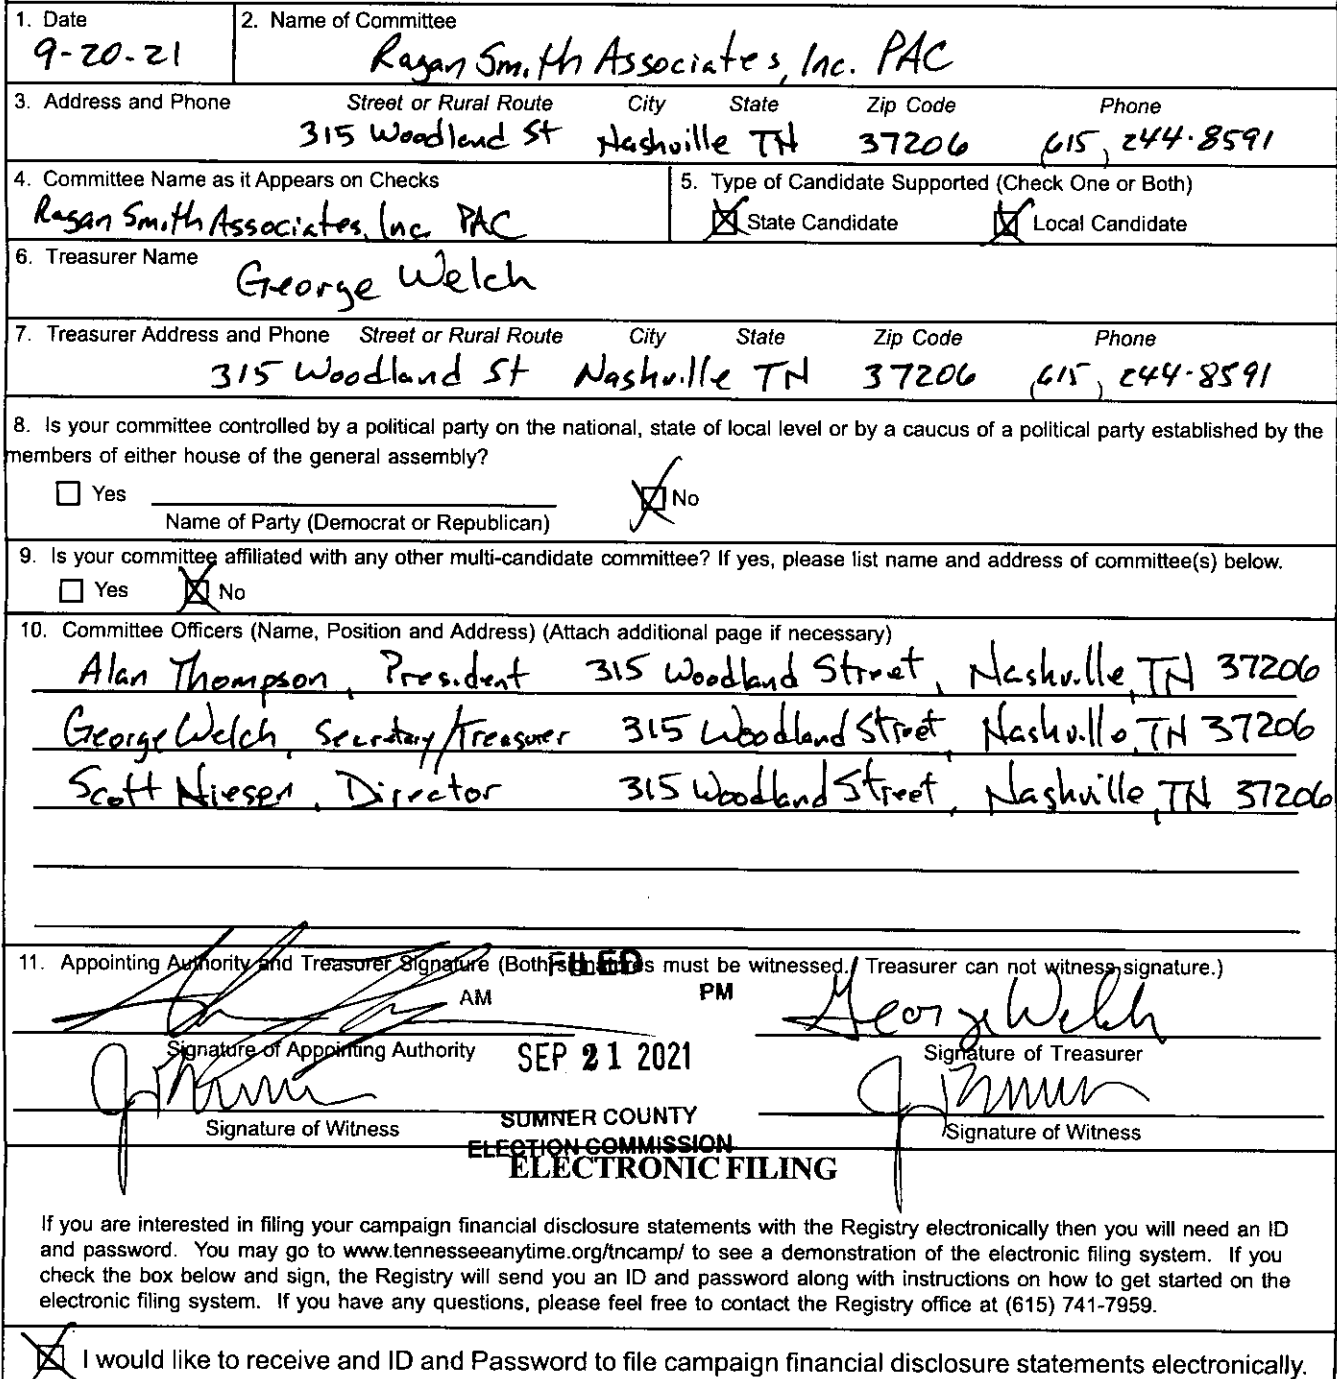 1. Date
2. Name of Committee
9-20-21
Ragan Smith Associates, Inc. PAC
3. Address and Phone Street or Rural Route City State Zip Code Phone
315 Woodland St Nashville TN 37206 (615) 244-8591
4. Committee Name as it Appears on Checks
Ragan Smith Associates, Inc. PAC
5. Type of Candidate Supported (Check One or Both)
State Candidate Local Candidate
6. Treasurer Name
George Welch
7. Treasurer Address and Phone Street or Rural Route City State Zip Code Phone
315 Woodland St Nashville TN 37206 (615) 244-8591
8. Is your committee controlled by a political party on the national, state of local level or by a caucus of a political party established by the
members of either house of the general assembly?
Yes No
Name of Party (Democrat or Republican)
9. Is your committee affiliated with any other multi-candidate committee? If yes, please list name and address of committee(s) below.
Yes No
10. Committee Officers (Name, Position and Address) (Attach additional page if necessary)
Alan Thompson, President 315 Woodland Street, Nashville, TN 37206
George Welch, Secretary/Treasurer 315 Woodland Street, Nashville, TN 37206
Scott Niesen, Director 315 Woodland Street, Nashville, TN 37206
11. Appointing Authority and Treasurer Signature (Both signatures must be witnessed. Treasurer can not witness signature.)
FILED
AM PM
George Welch
Signature of Appointing Authority
SEP 21 2021
Signature of Treasurer
Signature of Witness
SUMNER COUNTY
Signature of Witness
ELECTION COMMISSION
ELECTRONIC FILING
If you are interested in filing your campaign financial disclosure statements with the Registry electronically then you will need an ID
and password. You may go to www.tennesseeanytime.org/tncamp/ to see a demonstration of the electronic filing system. If you
check the box below and sign, the Registry will send you an ID and password along with instructions on how to get started on the
electronic filing system. If you have any questions, please feel free to contact the Registry office at (615) 741-7959.
I would like to receive and ID and Password to file campaign financial disclosure statements electronically.